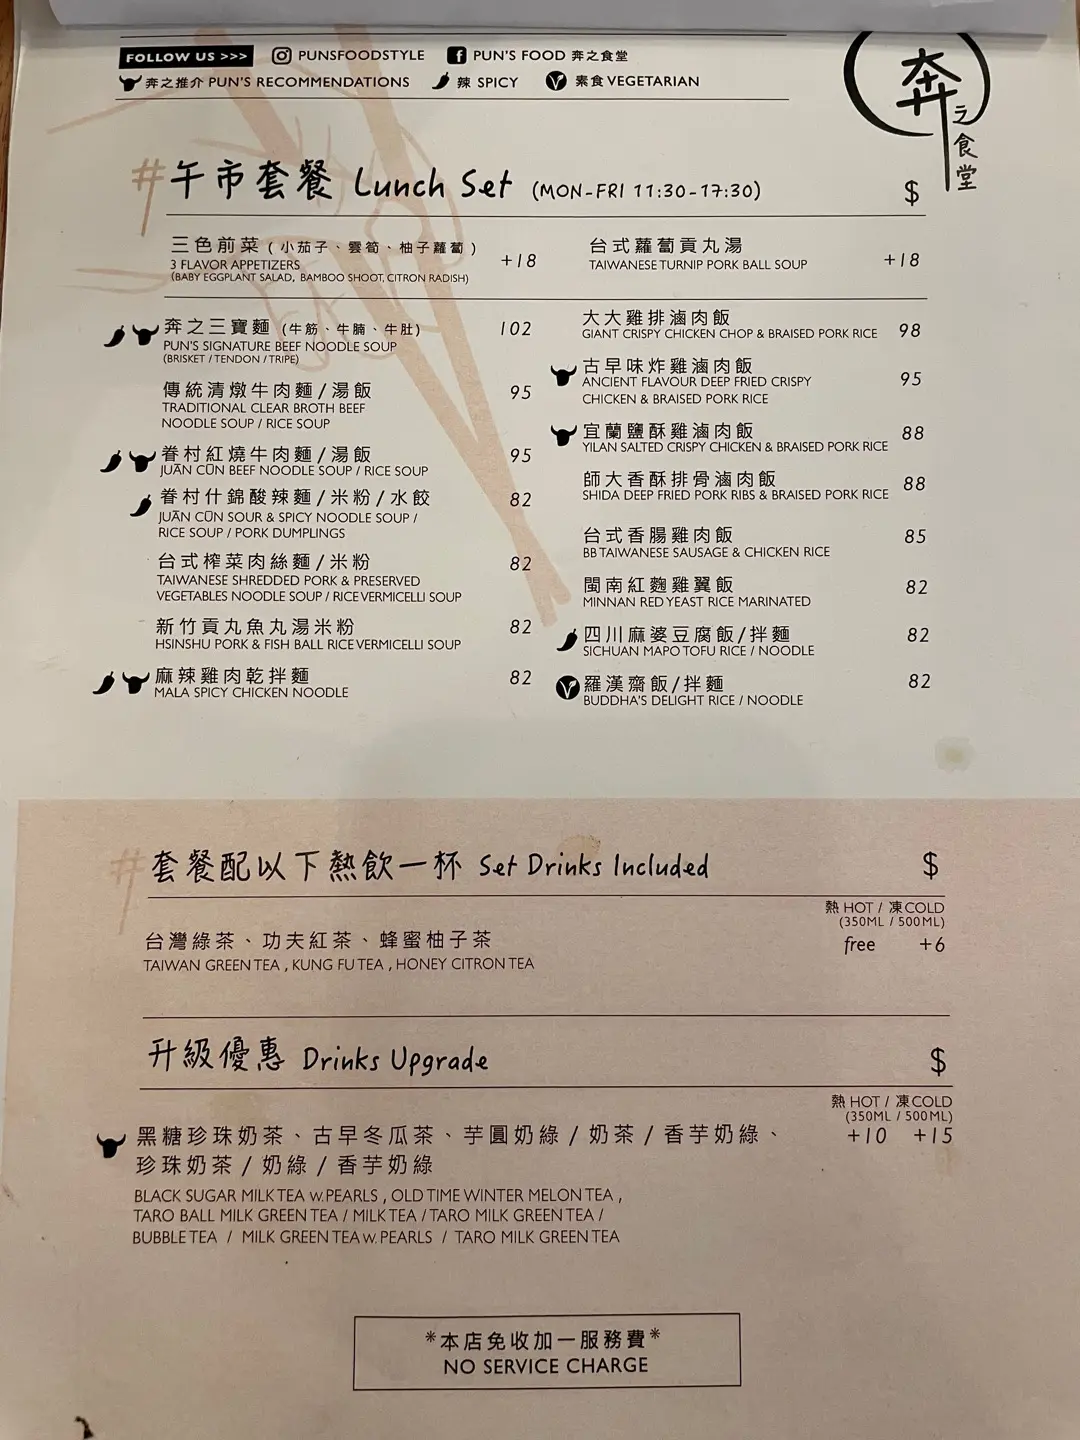 FOLLOW US >>> PUNSFOODSTYLE PUN'S FOOD 奔之食堂
奔之推介 PUN'S RECOMMENDATIONS 辣 SPICY 素食 VEGETARIAN
奔之食堂
#午市套餐 Lunch Set (MON-FRI 11:30-17:30) $
三色前菜 (小茄子、雲筍、柚子蘿蔔) +18
3 FLAVOR APPETIZERS
(BABY EGGPLANT SALAD, BAMBOO SHOOT, CITRON RADISH)
台式蘿蔔貢丸湯 +18
TAIWANESE TURNIP PORK BALL SOUP
奔之三寶麵 (牛筋、牛腩、牛肚) 102
PUN'S SIGNATURE BEEF NOODLE SOUP
(BRISKET / TENDON / TRIPE)
傳統清燉牛肉麵/湯飯 95
TRADITIONAL CLEAR BROTH BEEF
NOODLE SOUP / RICE SOUP
眷村紅燒牛肉麵/湯飯 95
JUĀN CŪN BEEF NOODLE SOUP / RICE SOUP
眷村什錦酸辣麵/米粉/水餃 82
JUĀN CŪN SOUR & SPICY NOODLE SOUP /
RICE SOUP / PORK DUMPLINGS
台式榨菜肉絲麵/米粉 82
TAIWANESE SHREDDED PORK & PRESERVED
VEGETABLES NOODLE SOUP / RICE VERMICELLI SOUP
新竹貢丸魚丸湯米粉 82
HSINSHU PORK & FISH BALL RICE VERMICELLI SOUP
麻辣雞肉乾拌麵 82
MALA SPICY CHICKEN NOODLE
大大雞排滷肉飯 98
GIANT CRISPY CHICKEN CHOP & BRAISED PORK RICE
古早味炸雞滷肉飯 95
ANCIENT FLAVOUR DEEP FRIED CRISPY
CHICKEN & BRAISED PORK RICE
宜蘭鹽酥雞滷肉飯 88
YILAN SALTED CRISPY CHICKEN & BRAISED PORK RICE
師大香酥排骨滷肉飯 88
SHIDA DEEP FRIED PORK RIBS & BRAISED PORK RICE
台式香腸雞肉飯 85
BB TAIWANESE SAUSAGE & CHICKEN RICE
閩南紅麴雞翼飯 82
MINNAN RED YEAST RICE MARINATED
四川麻婆豆腐飯/拌麵 82
SICHUAN MAPO TOFU RICE / NOODLE
羅漢齋飯/拌麵 82
BUDDHA'S DELIGHT RICE / NOODLE
#套餐配以下熱飲一杯 Set Drinks Included $
熱 HOT / 凍 COLD
(350ML / 500ML)
台灣綠茶、功夫紅茶、蜂蜜柚子茶 free +6
TAIWAN GREEN TEA , KUNG FU TEA , HONEY CITRON TEA
升級優惠 Drinks Upgrade $
熱 HOT / 凍 COLD
(350ML / 500ML)
黑糖珍珠奶茶、古早冬瓜茶、芋圓奶綠 / 奶茶 / 香芋奶綠、 +10 +15
珍珠奶茶 / 奶綠 / 香芋奶綠
BLACK SUGAR MILK TEA w. PEARLS , OLD TIME WINTER MELON TEA ,
TARO BALL MILK GREEN TEA / MILK TEA / TARO MILK GREEN TEA /
BUBBLE TEA / MILK GREEN TEA w. PEARLS / TARO MILK GREEN TEA
*本店免收加一服務費*
NO SERVICE CHARGE